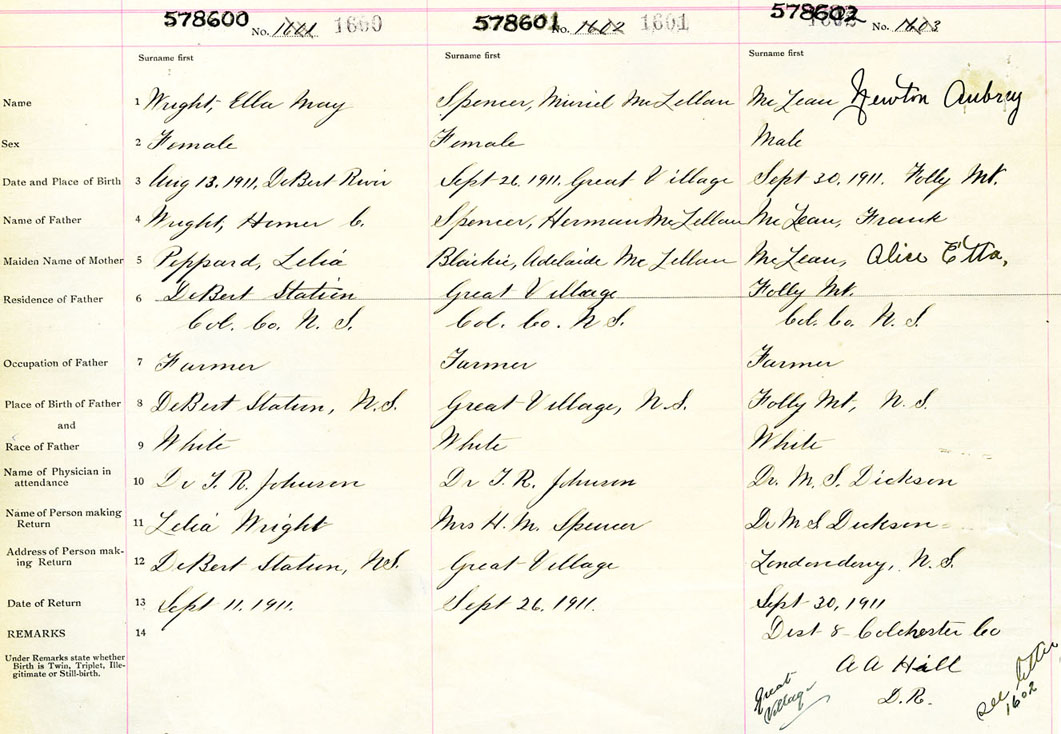 578600 578601 578602
No. 1601 1600 No. 1602 1601 1602 No. 1603
Surname first Surname first Surname first
Name 1 Wright, Ella May Spencer, Muriel McLellan McLean Newton Aubrey
Sex 2 Female Female Male
Date and Place of Birth 3 Aug 13, 1911, DeBert River Sept 26, 1911. Great Village Sept 30, 1911. Folly Mt.
Name of Father 4 Wright, Homer C. Spencer, Herman McLellan McLean, Frank
Maiden Name of Mother 5 Peppard, Lelia Blaikie, Adelaide McLellan McLean, Alice Etta,
Residence of Father 6 DeBert Station Great Village Folly Mt.
Col. Co. N. S. Col. Co. N S. Col. Co. N. S.
Occupation of Father 7 Farmer Farmer Farmer
Place of Birth of Father 8 DeBert Station, N.S. Great Village, N.S. Folly Mt, N. S.
and
Race of Father 9 White White White
Name of Physician in
attendance 10 Dr T. R. Johnson Dr T. R. Johnson Dr. M. S. Dickson
Name of Person making
Return 11 Lelia Wright Mrs H. M. Spencer Dr M S Dickson
Address of Person mak-
ing Return 12 DeBert Station, N.S. Great Village Londonderry, N. S.
Date of Return 13 Sept 11, 1911. Sept 26, 1911. Sept 30, 1911
REMARKS 14 Dist 8 Colchester Co
Under Remarks state whether
Birth is Twin, Triplet, Ille-
gitimate or Still-birth.
A A Hill
D.R.
Great
Village
see letter
1602